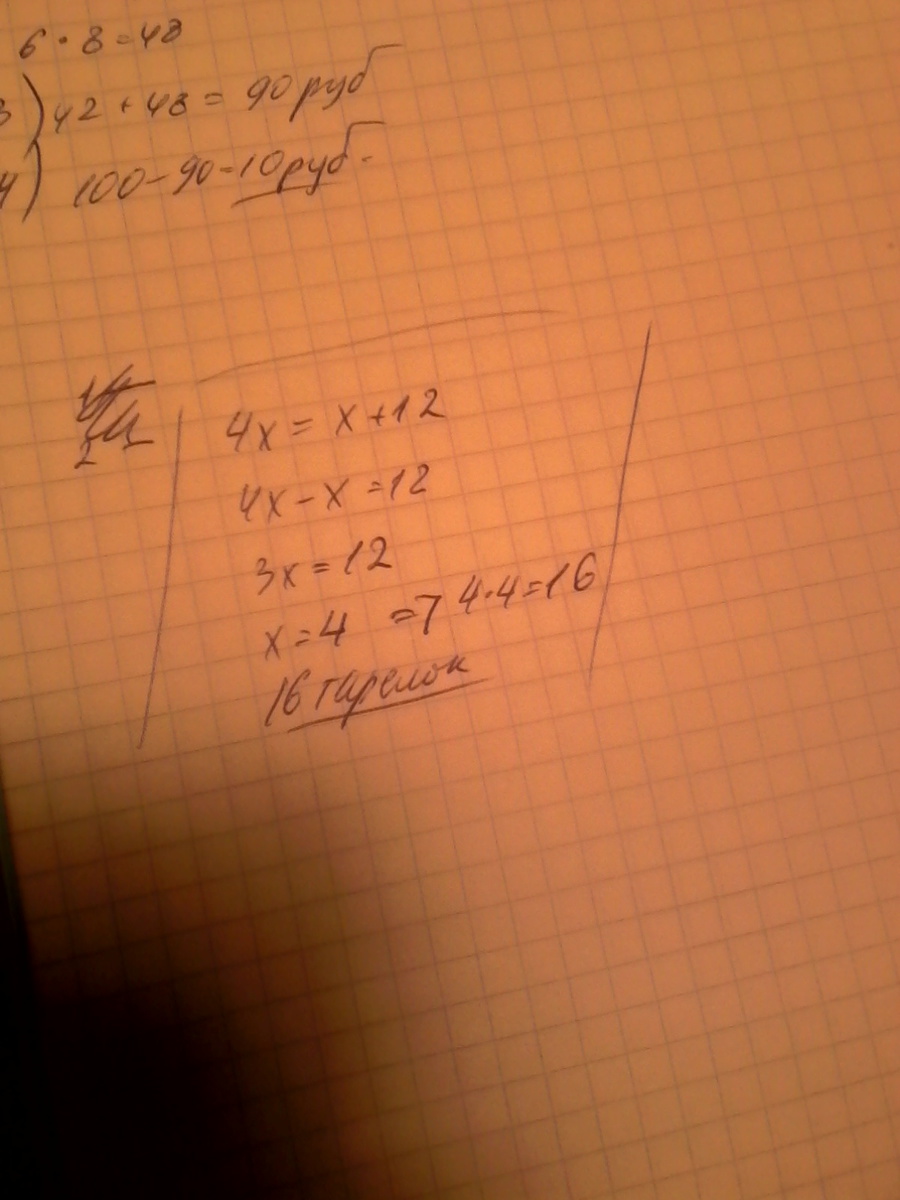 6 · 8 = 48
3) 42 + 48 = 90 руб
4) 100 - 90 = 10 руб.
2
4x = x + 12
4x - x = 12
3x = 12
x = 4 => 4·4=16
16 тарелок